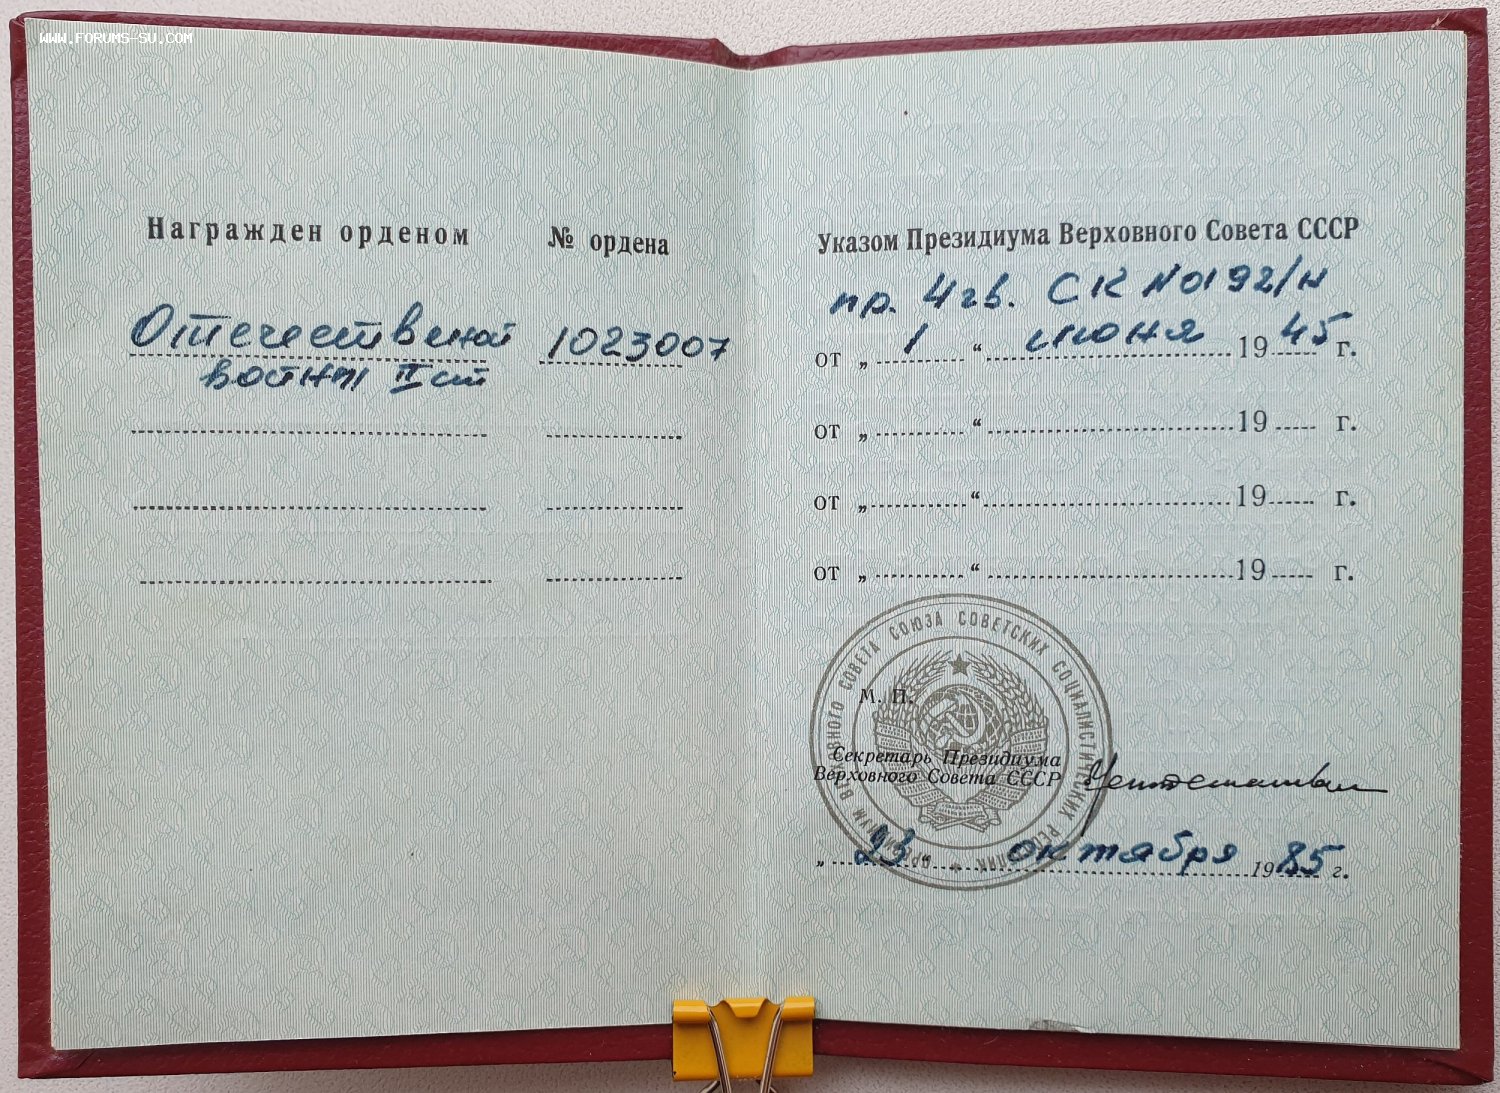 WWW.FORUMS-SU.COM
Награжден орденом
№ ордена
Отечественной
1023007
войны II ст
Указом Президиума Верховного Совета СССР
пр. 4 гв. СК №0192/н
от „ 1 “ июня 1945 г.
от „ “ 19 г.
от „ “ 19 г.
от „ “ 19 г.
ПРЕЗИДИУМ ВЕРХОВНОГО СОВЕТА СОЮЗА СОВЕТСКИХ СОЦИАЛИСТИЧЕСКИХ РЕСПУБЛИК
М. П.
Секретарь Президиума
Верховного Совета СССР
„ 23 “ октября 1985 г.